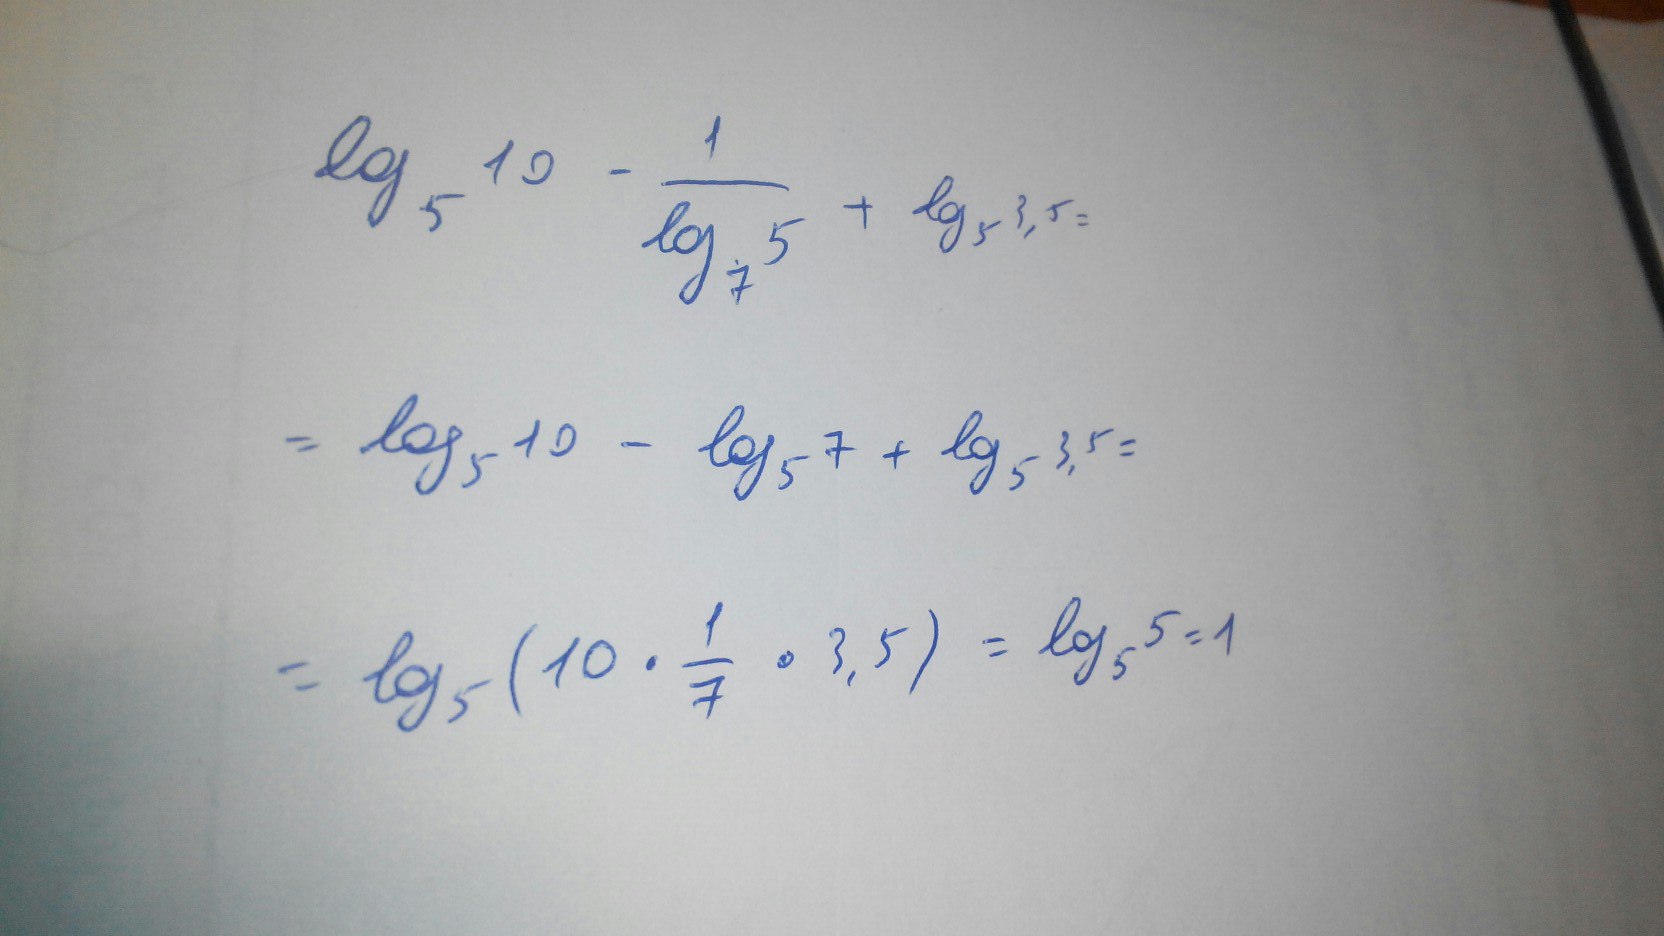 log₅ 10 - 1/(log₇ 5) + log₅ 3,5 =
= log₅ 10 - log₅ 7 + log₅ 3,5 =
= log₅ (10 · 1/7 · 3,5) = log₅ 5 = 1